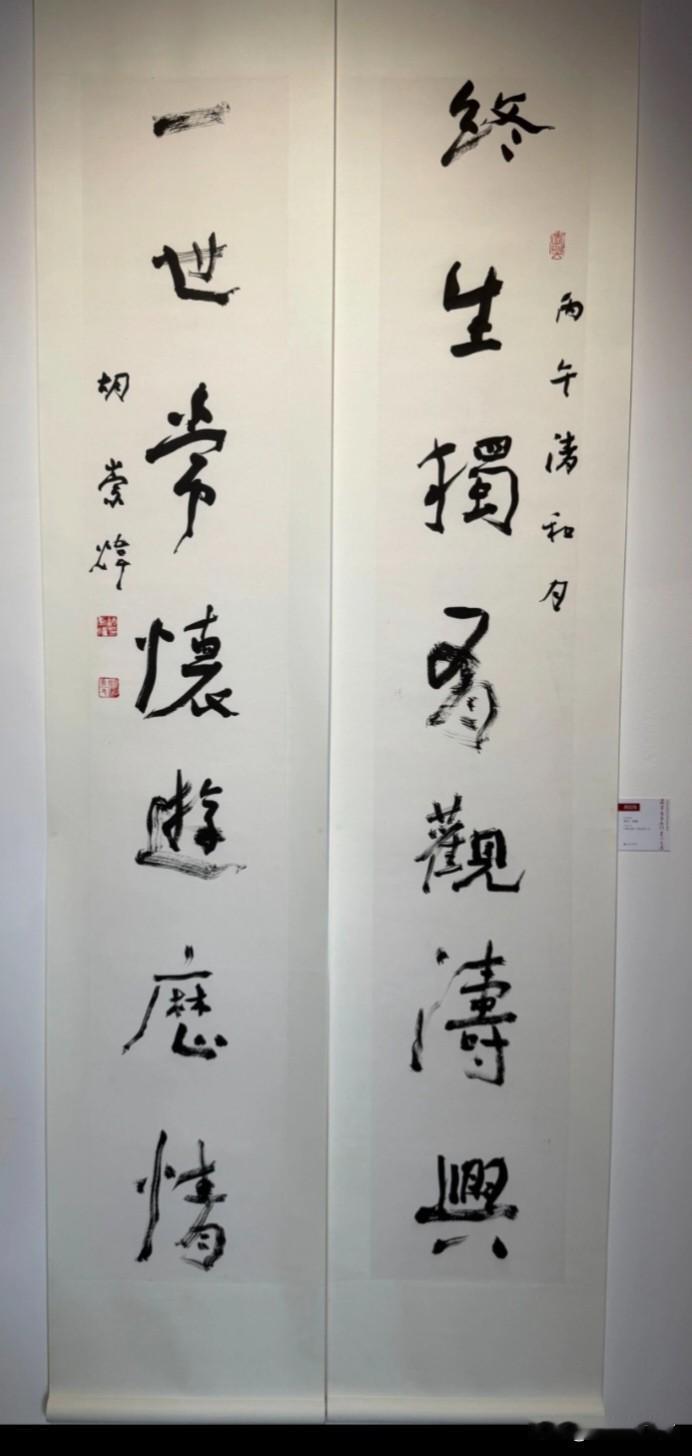 丙午清和月
終生獨有觀濤興
一世常懷遊歷情
胡崇煒